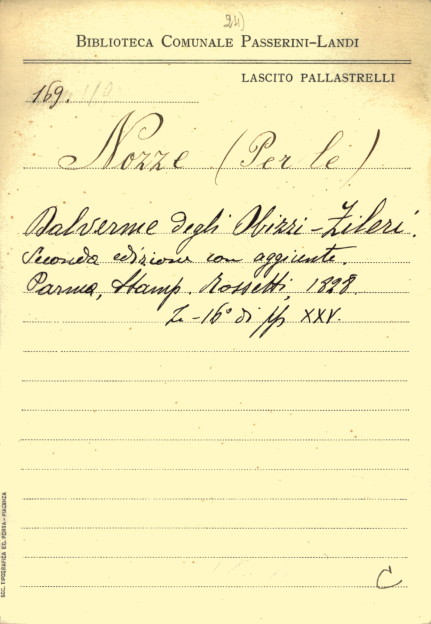 24)
BIBLIOTECA COMUNALE PASSERINI-LANDI
LASCITO PALLASTRELLI
169.
Nozze (Per le)
Dalverme degli Obizzi-Zileri.
Seconda edizione con aggiunte.
Parma, Stamp. Rossetti, 1828.
In-16° di pp XXV.
C
SOC. TIPOGRAFICA ED. PORTA-PIACENZA